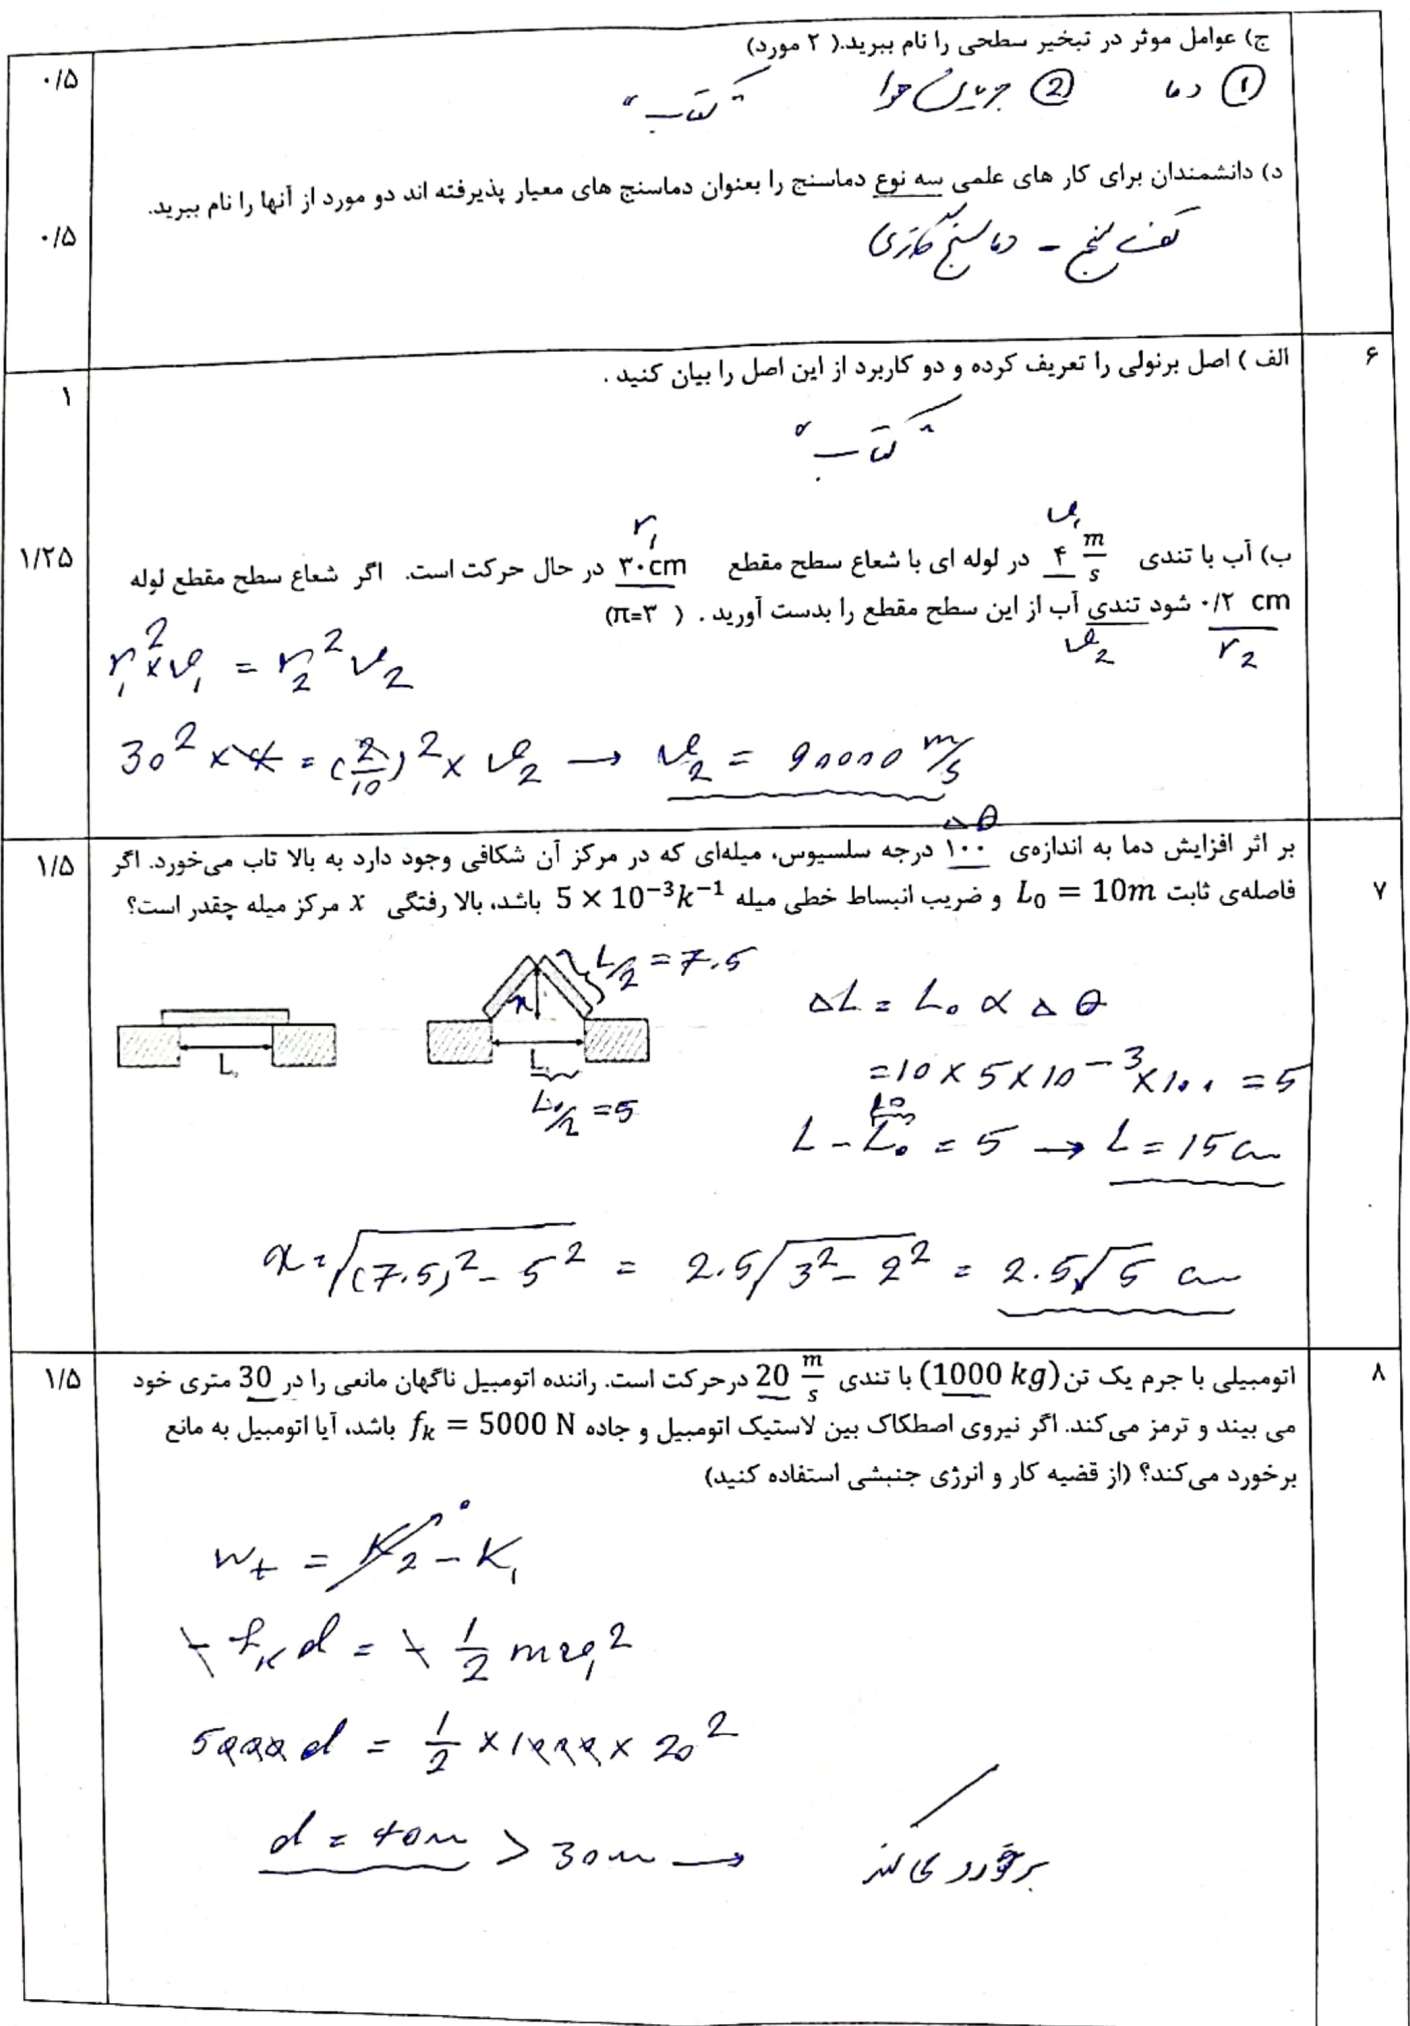 ج) عوامل موثر در تبخیر سطحی را نام ببرید.( ۲ مورد)
۰/۵
① دما ② جریان هوا "کتاب"
د) دانشمندان برای کار های علمی سه نوع دماسنج را بعنوان دماسنج های معیار پذیرفته اند دو مورد از آنها را نام ببرید.
۰/۵
تف سنج - دماسنج گازی
۶
الف ) اصل برنولی را تعریف کرده و دو کاربرد از این اصل را بیان کنید .
۱
"کتاب"
v₁
r₁
ب) آب با تندی ۴ m/s در لوله ای با شعاع سطح مقطع ۳۰cm در حال حرکت است. اگر شعاع سطح مقطع لوله
۱/۲۵
۰/۲ cm شود تندی آب از این سطح مقطع را بدست آورید . ( π=۳)
r₂
v₂
r₁² × v₁ = r₂² v₂
30² × 4 = (2/10)² × v₂ → v₂ = 90000 m/s
Δθ
بر اثر افزایش دما به اندازه‌ی ۱۰۰ درجه سلسیوس، میله‌ای که در مرکز آن شکافی وجود دارد به بالا تاب می‌خورد. اگر
۱/۵
۷
فاصله‌ی ثابت L₀ = 10m و ضریب انبساط خطی میله 5 × 10⁻³k⁻¹ باشد، بالا رفتگی x مرکز میله چقدر است؟
L/2 = 7.5
x
L₀
L₀
L₀/2 = 5
ΔL = L₀ α Δθ
= 10 × 5 × 10⁻³ × 100 = 5
10
L - L₀ = 5 → L = 15 cm
x = √((7.5)² - 5²) = 2.5√(3² - 2²) = 2.5√5 cm
۸
اتومبیلی با جرم یک تن (1000 kg) با تندی 20 m/s درحرکت است. راننده اتومبیل ناگهان مانعی را در 30 متری خود
۱/۵
می بیند و ترمز می‌کند. اگر نیروی اصطکاک بین لاستیک اتومبیل و جاده fₖ = 5000 N باشد، آیا اتومبیل به مانع
برخورد می‌کند؟ (از قضیه کار و انرژی جنبشی استفاده کنید)
0
Wt = K₂ - K₁
- fₖ d = - 1/2 m v₁²
5000 d = 1/2 × 1000 × 20²
d = 40m > 30m → برخورد می کند